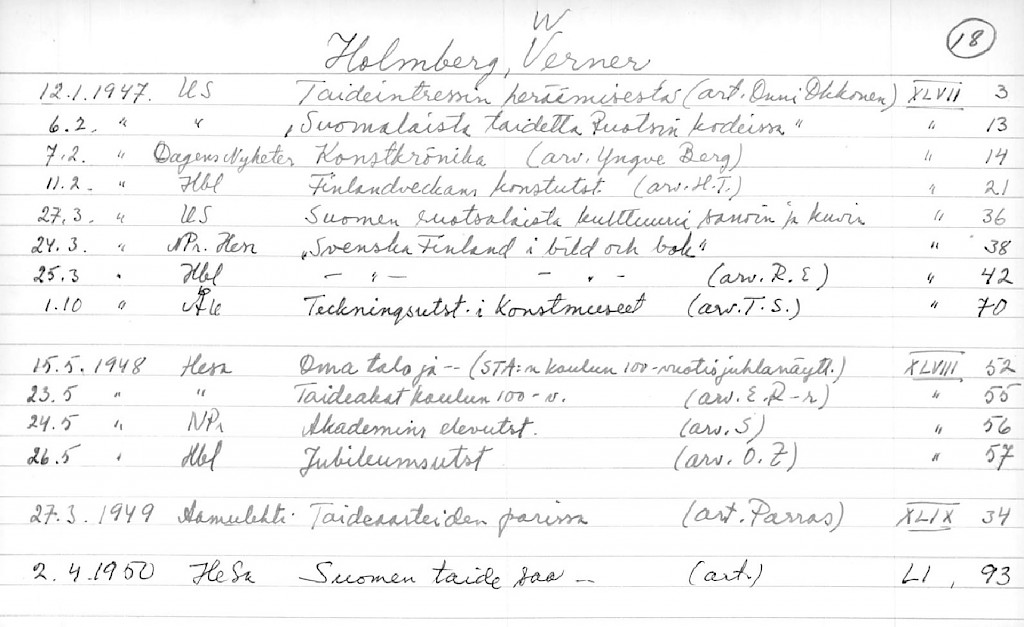 W
18
Holmberg, Verner
12.1.1947. US Taideintressin heräämisestä (art. Onni Okkonen) XLVII 3
6.2. " " „Suomalaista taidetta Ruotsin kodeissa" " 13
7.2. " Dagens Nyheter Konstkrönika (arv. Yngve Berg) " 14
11.2. " Hbl Finlandveckans konstutst. (arv. H.T.) " 21
27.3. " US Suomen ruotsalaista kulttuuria sanoin ja kuvin " 36
24.3. " NPr. Hesa „Svenska Finland i bild och bok" " 38
25.3 " Hbl – " – – " – (arv. R.E) " 42
1.10 " ÅU Teckningsutst. i Konstmuseet (arv. T.S.) " 70
15.5.1948 Hesa Oma talo ja -- (STA:n koulun 100-vuotisjuhlanäytt.) XLVIII 52
23.5 " " Taideakat koulun 100-v. (arv. E.R-r) " 55
24.5 " NPr Akademins elevutst. (arv. S) " 56
26.5 " Hbl Jubileumsutst (arv. O.Z) " 57
27.3.1949 Aamulehti Taideaarteiden parissa (art. Parras) XLIX 34
2.4.1950 HeSa Suomen taide saa -- (art.) LI, 93